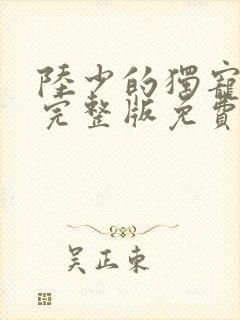 陸少的獨寵
完整版免費
吴正東